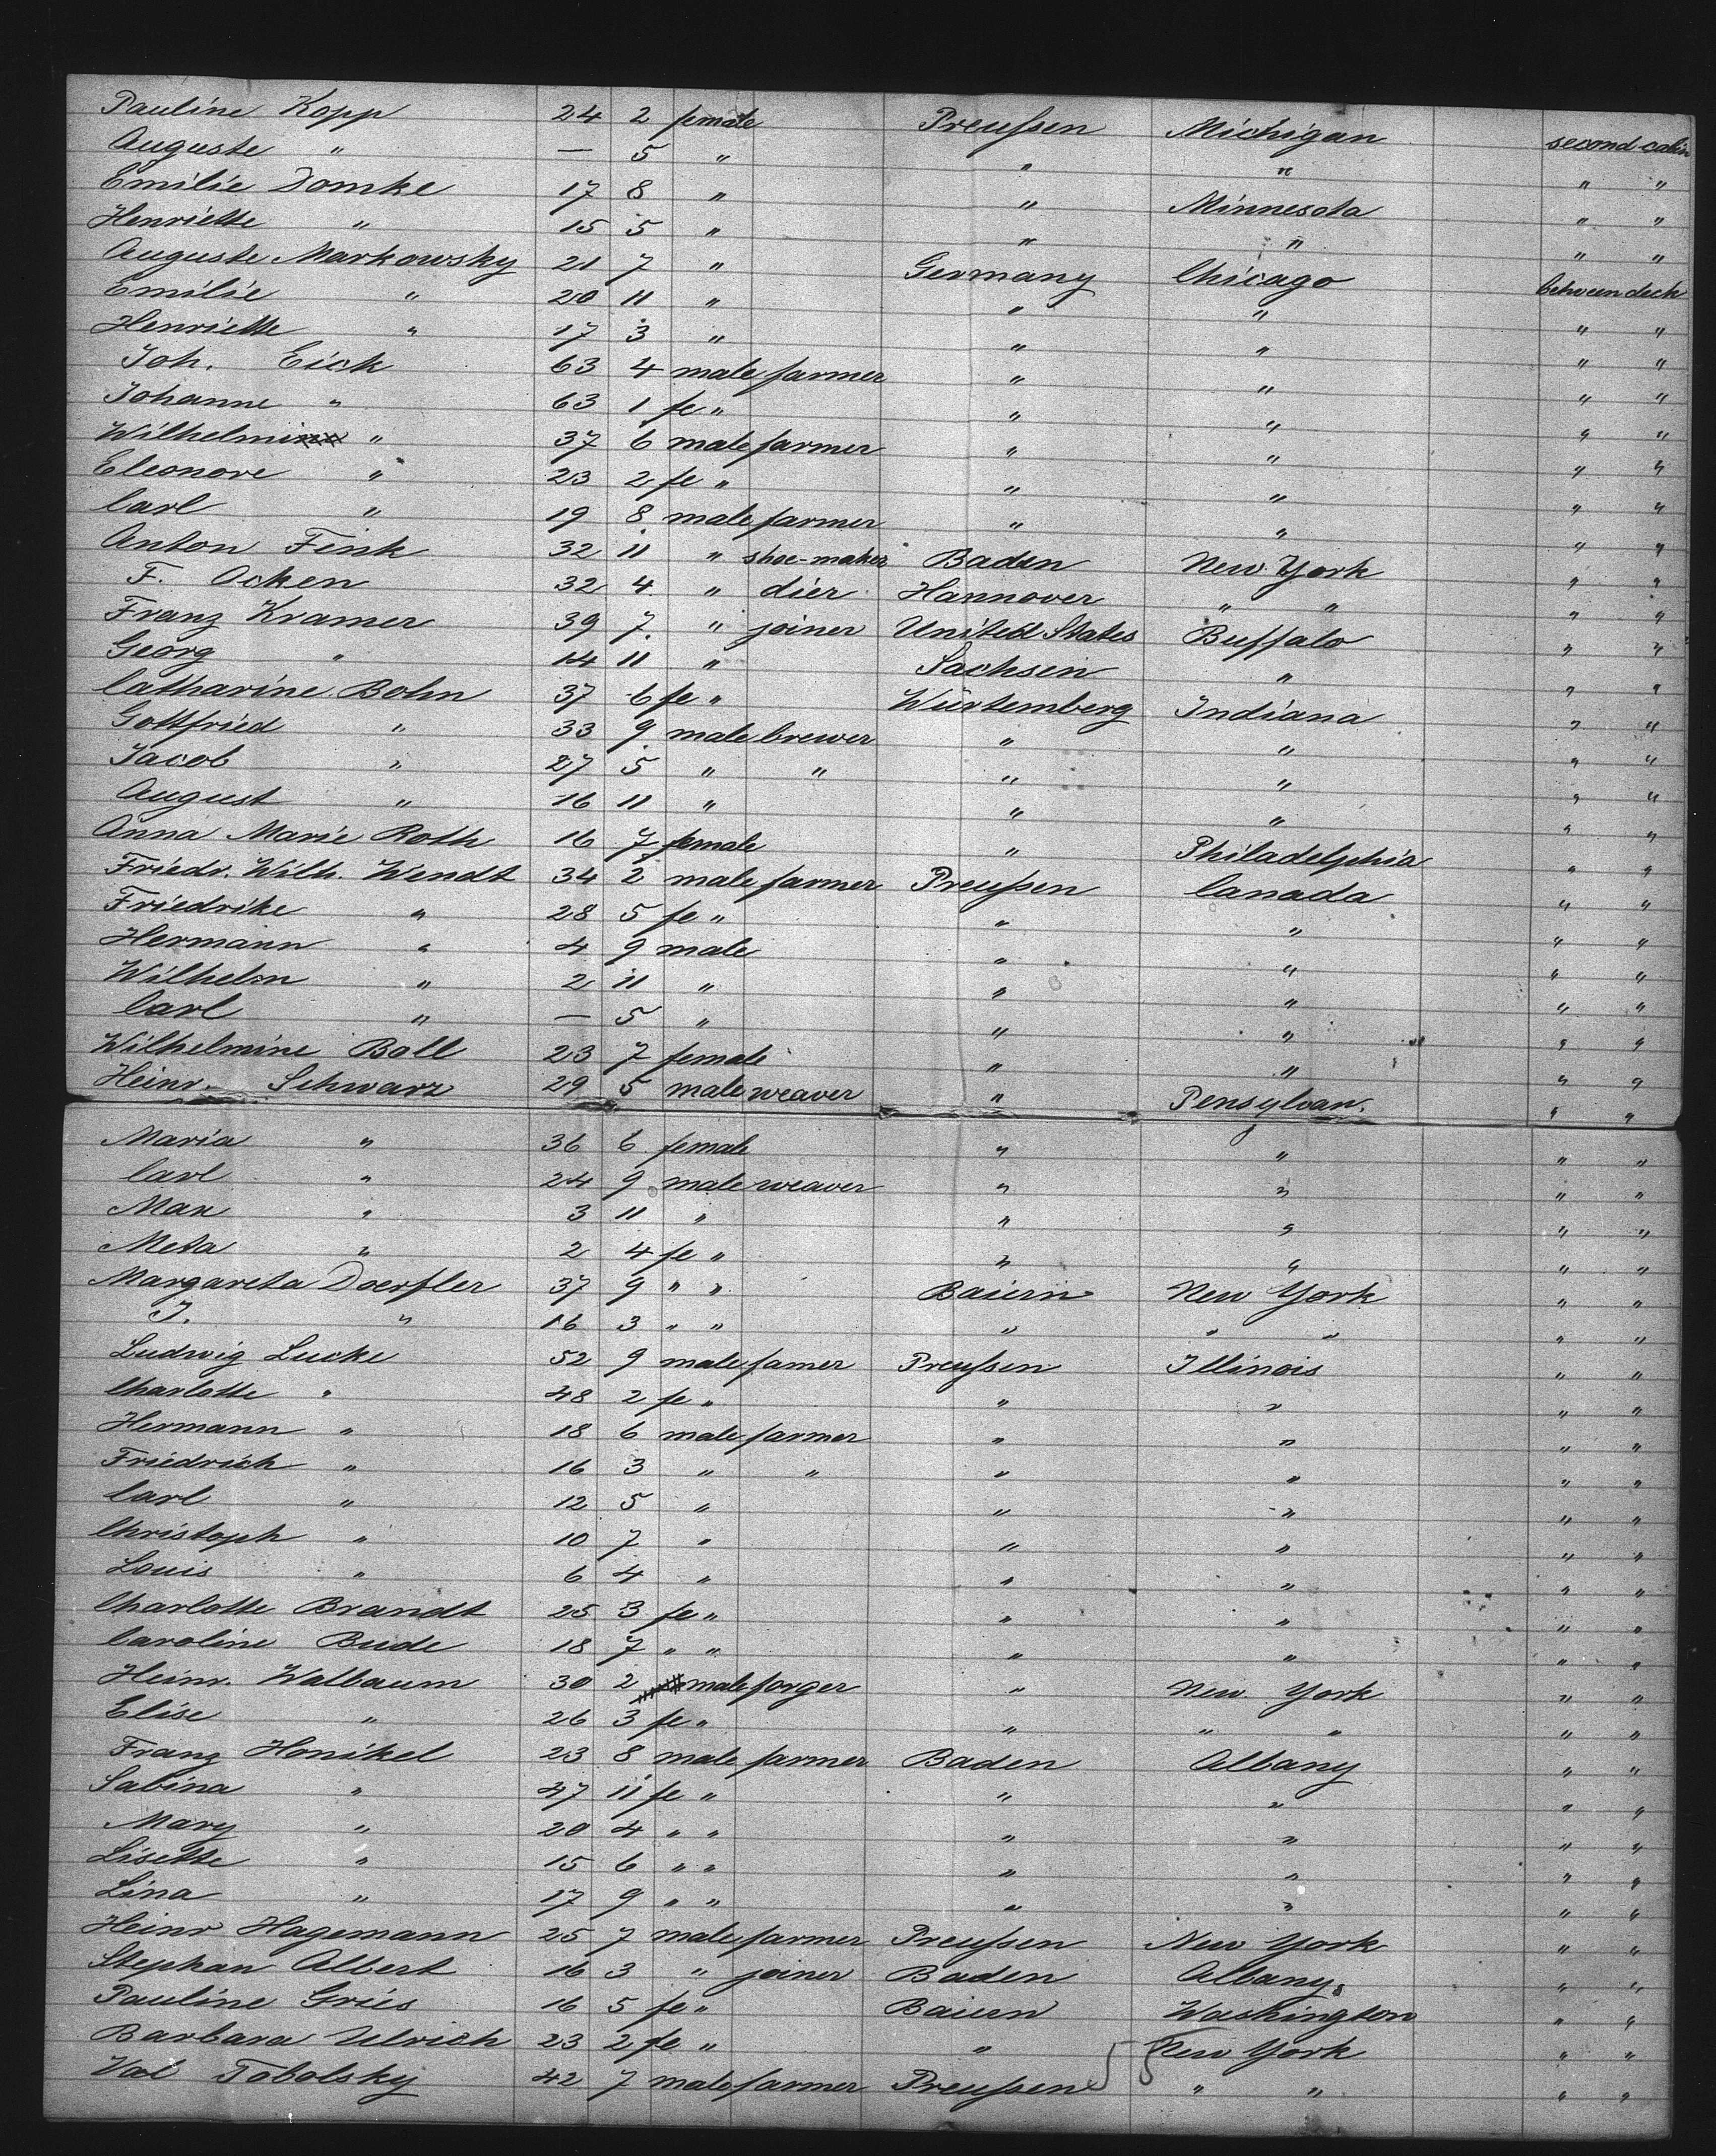 Pauline Kopp 24 2 female Preußen Michigan second cabin
Auguste " — 5 " " " " "
Emilie Domke 17 8 " " Minnesota " "
Henriette " 15 5 " " " " "
Auguste Markowsky 21 7 " Germany Chicago between deck
Emilie " 20 11 " " " " "
Henriette " 17 3 " " " " "
Joh. Eick 63 4 male farmer " " " "
Johanne " 63 1 fe " " " " "
Wilhelm " 37 6 male farmer " " " "
Eleonore " 23 2 fe " " " " "
Carl " 19 8 male farmer " " " "
Anton Fink 32 11 " shoe-maker Baden New York " "
F. Ocken 32 4 " dier Hannover " " " "
Franz Kramer 39 7 " joiner United States Buffalo " "
Georg " 14 11 " Sachsen " " "
Catharine Bohn 37 6 fe " Würtemberg Indiana " "
Gottfried " 33 9 male brewer " " " "
Jacob " 27 5 " " " " " "
August " 16 11 " " " " "
Anna Marie Roth 16 7 female " Philadelphia " "
Friedr. Wilh. Wendt 34 2 male farmer Preußen Canada " "
Friedrike " 28 5 fe " " " " "
Hermann " 4 9 male " " " "
Wilhelm " 2 11 " " " " "
Carl " — 5 " " " " "
Wilhelmine Boll 23 7 female " " " "
Heinr. Schwarz 29 5 male weaver " Pensylvan. " "
Maria " 36 6 female " " " "
Carl " 24 9 male weaver " " " "
Max " 3 11 " " " " "
Meta " 2 4 fe " " " " "
Margareta Doerfler 37 9 " " Baiern New York " "
J. " 16 3 " " " " " " "
Ludwig Lucke 52 9 male famer Preußen Illinois " "
Charlotte " 48 2 fe " " " " "
Hermann " 18 6 male farmer " " " "
Friedrich " 16 3 " " " " " "
Carl " 12 5 " " " " "
Christoph " 10 7 " " " " "
Louis " 6 4 " " " " "
Charlotte Brandt 25 3 fe " " " " "
Caroline Bude 18 7 " " " " " "
Heinr. Walbaum 30 2 male forger " New York " "
Elise " 26 3 fe " " " " " "
Franz Honikel 23 8 male farmer Baden Albany " "
Sabina " 47 11 fe " " " " "
Mary " 20 4 " " " " " "
Lisette " 15 6 " " " " " "
Lina " 17 9 " " " " " "
Heinr Hagemann 25 7 male farmer Preußen New York " "
Stephan Albert 16 3 " joiner Baden Albany " "
Pauline Gries 16 5 fe " Baiern Washington " "
Barbara Ulrich 23 2 fe " " New York " "
Val Tobolsky 42 7 male farmer Preußen 55 " " " "